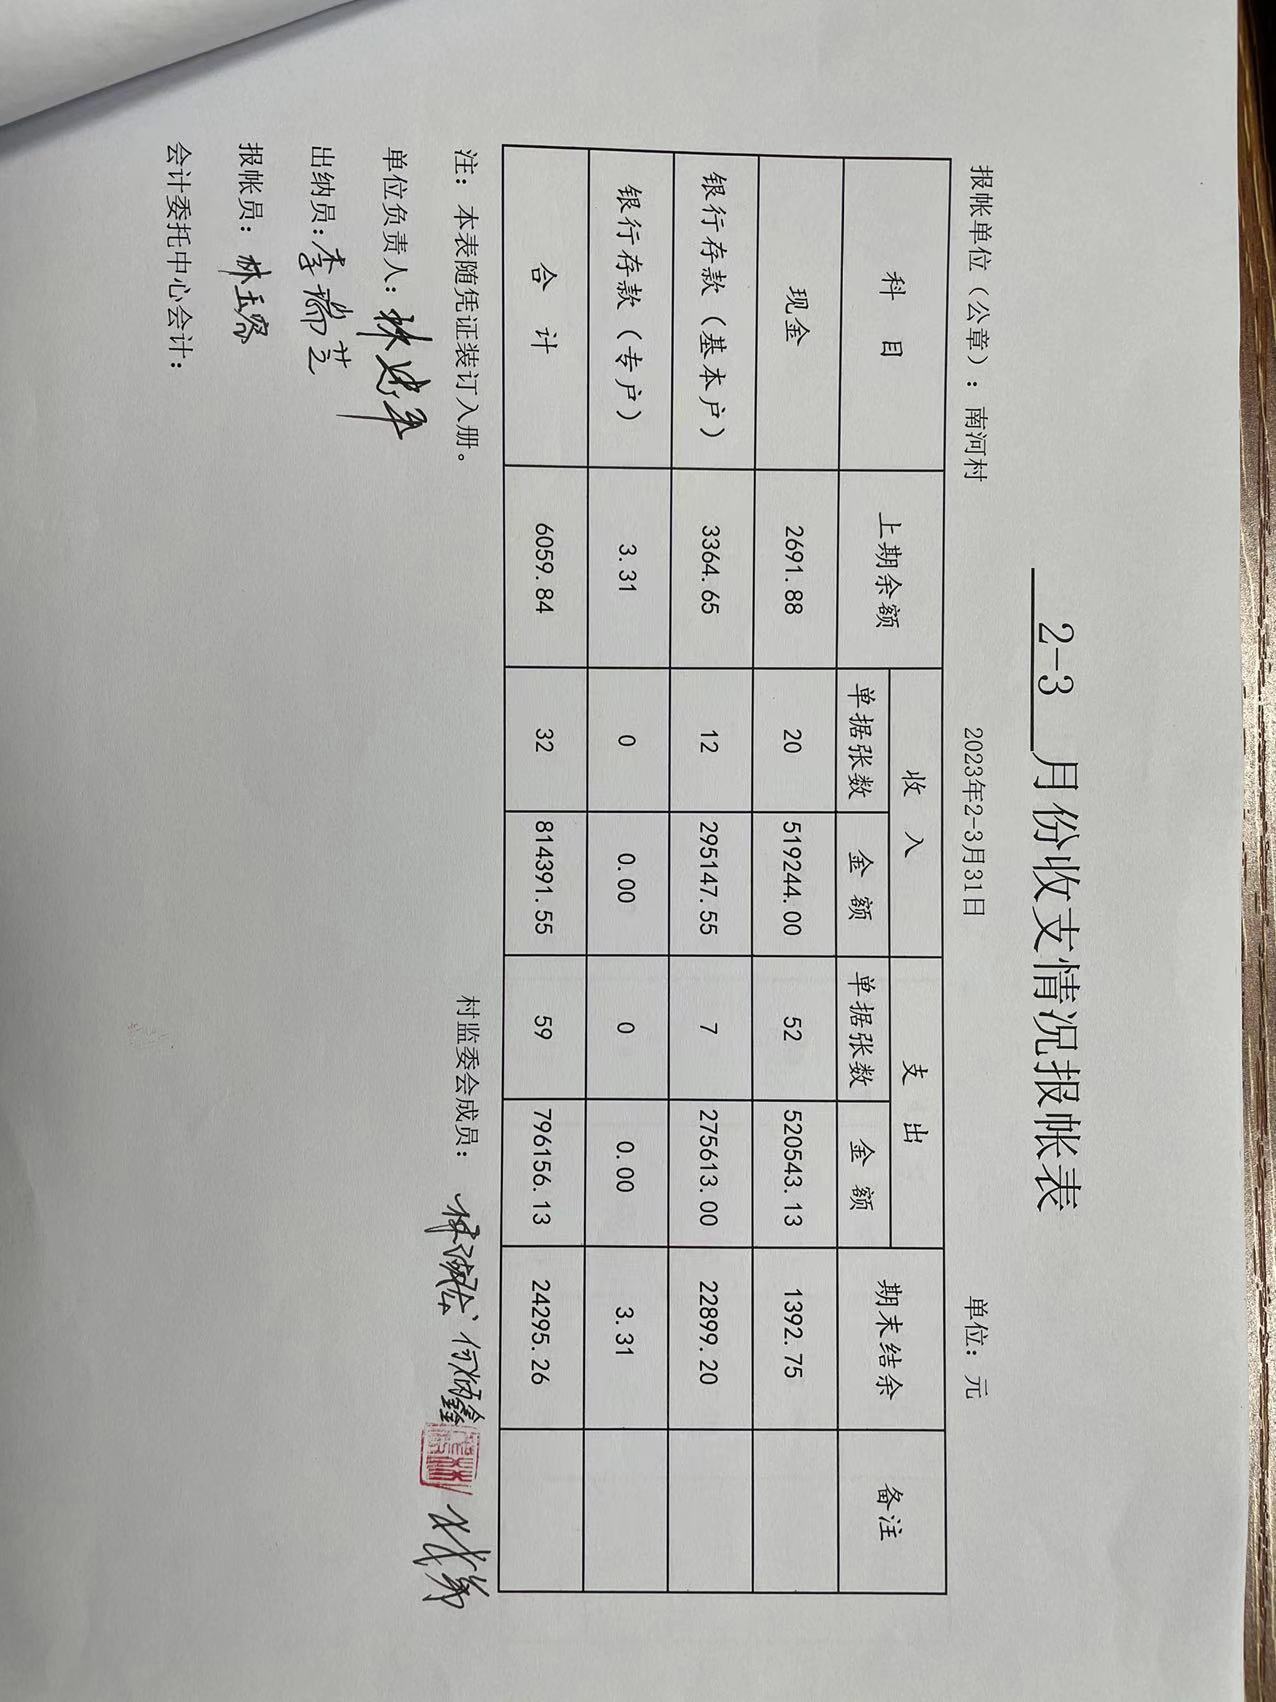 2-3 月份收支情况报帐表
报帐单位（公章）：南河村 2023年2-3月31日 单位：元
科 目 上期余额 收 入 支 出 期末结余 备注
单据张数 金 额 单据张数 金 额
现金 2691.88 20 519244.00 52 520543.13 1392.75
银行存款（基本户） 3364.65 12 295147.55 7 275613.00 22899.20
银行存款（专户） 3.31 0 0.00 0 0.00 3.31
合 计 6059.84 32 814391.55 59 796156.13 24295.26
注：本表随凭证装订入册。 村监委会成员：
单位负责人：林建平
出纳员：李瑞芝
报帐员：林玉容
会计委托中心会计：